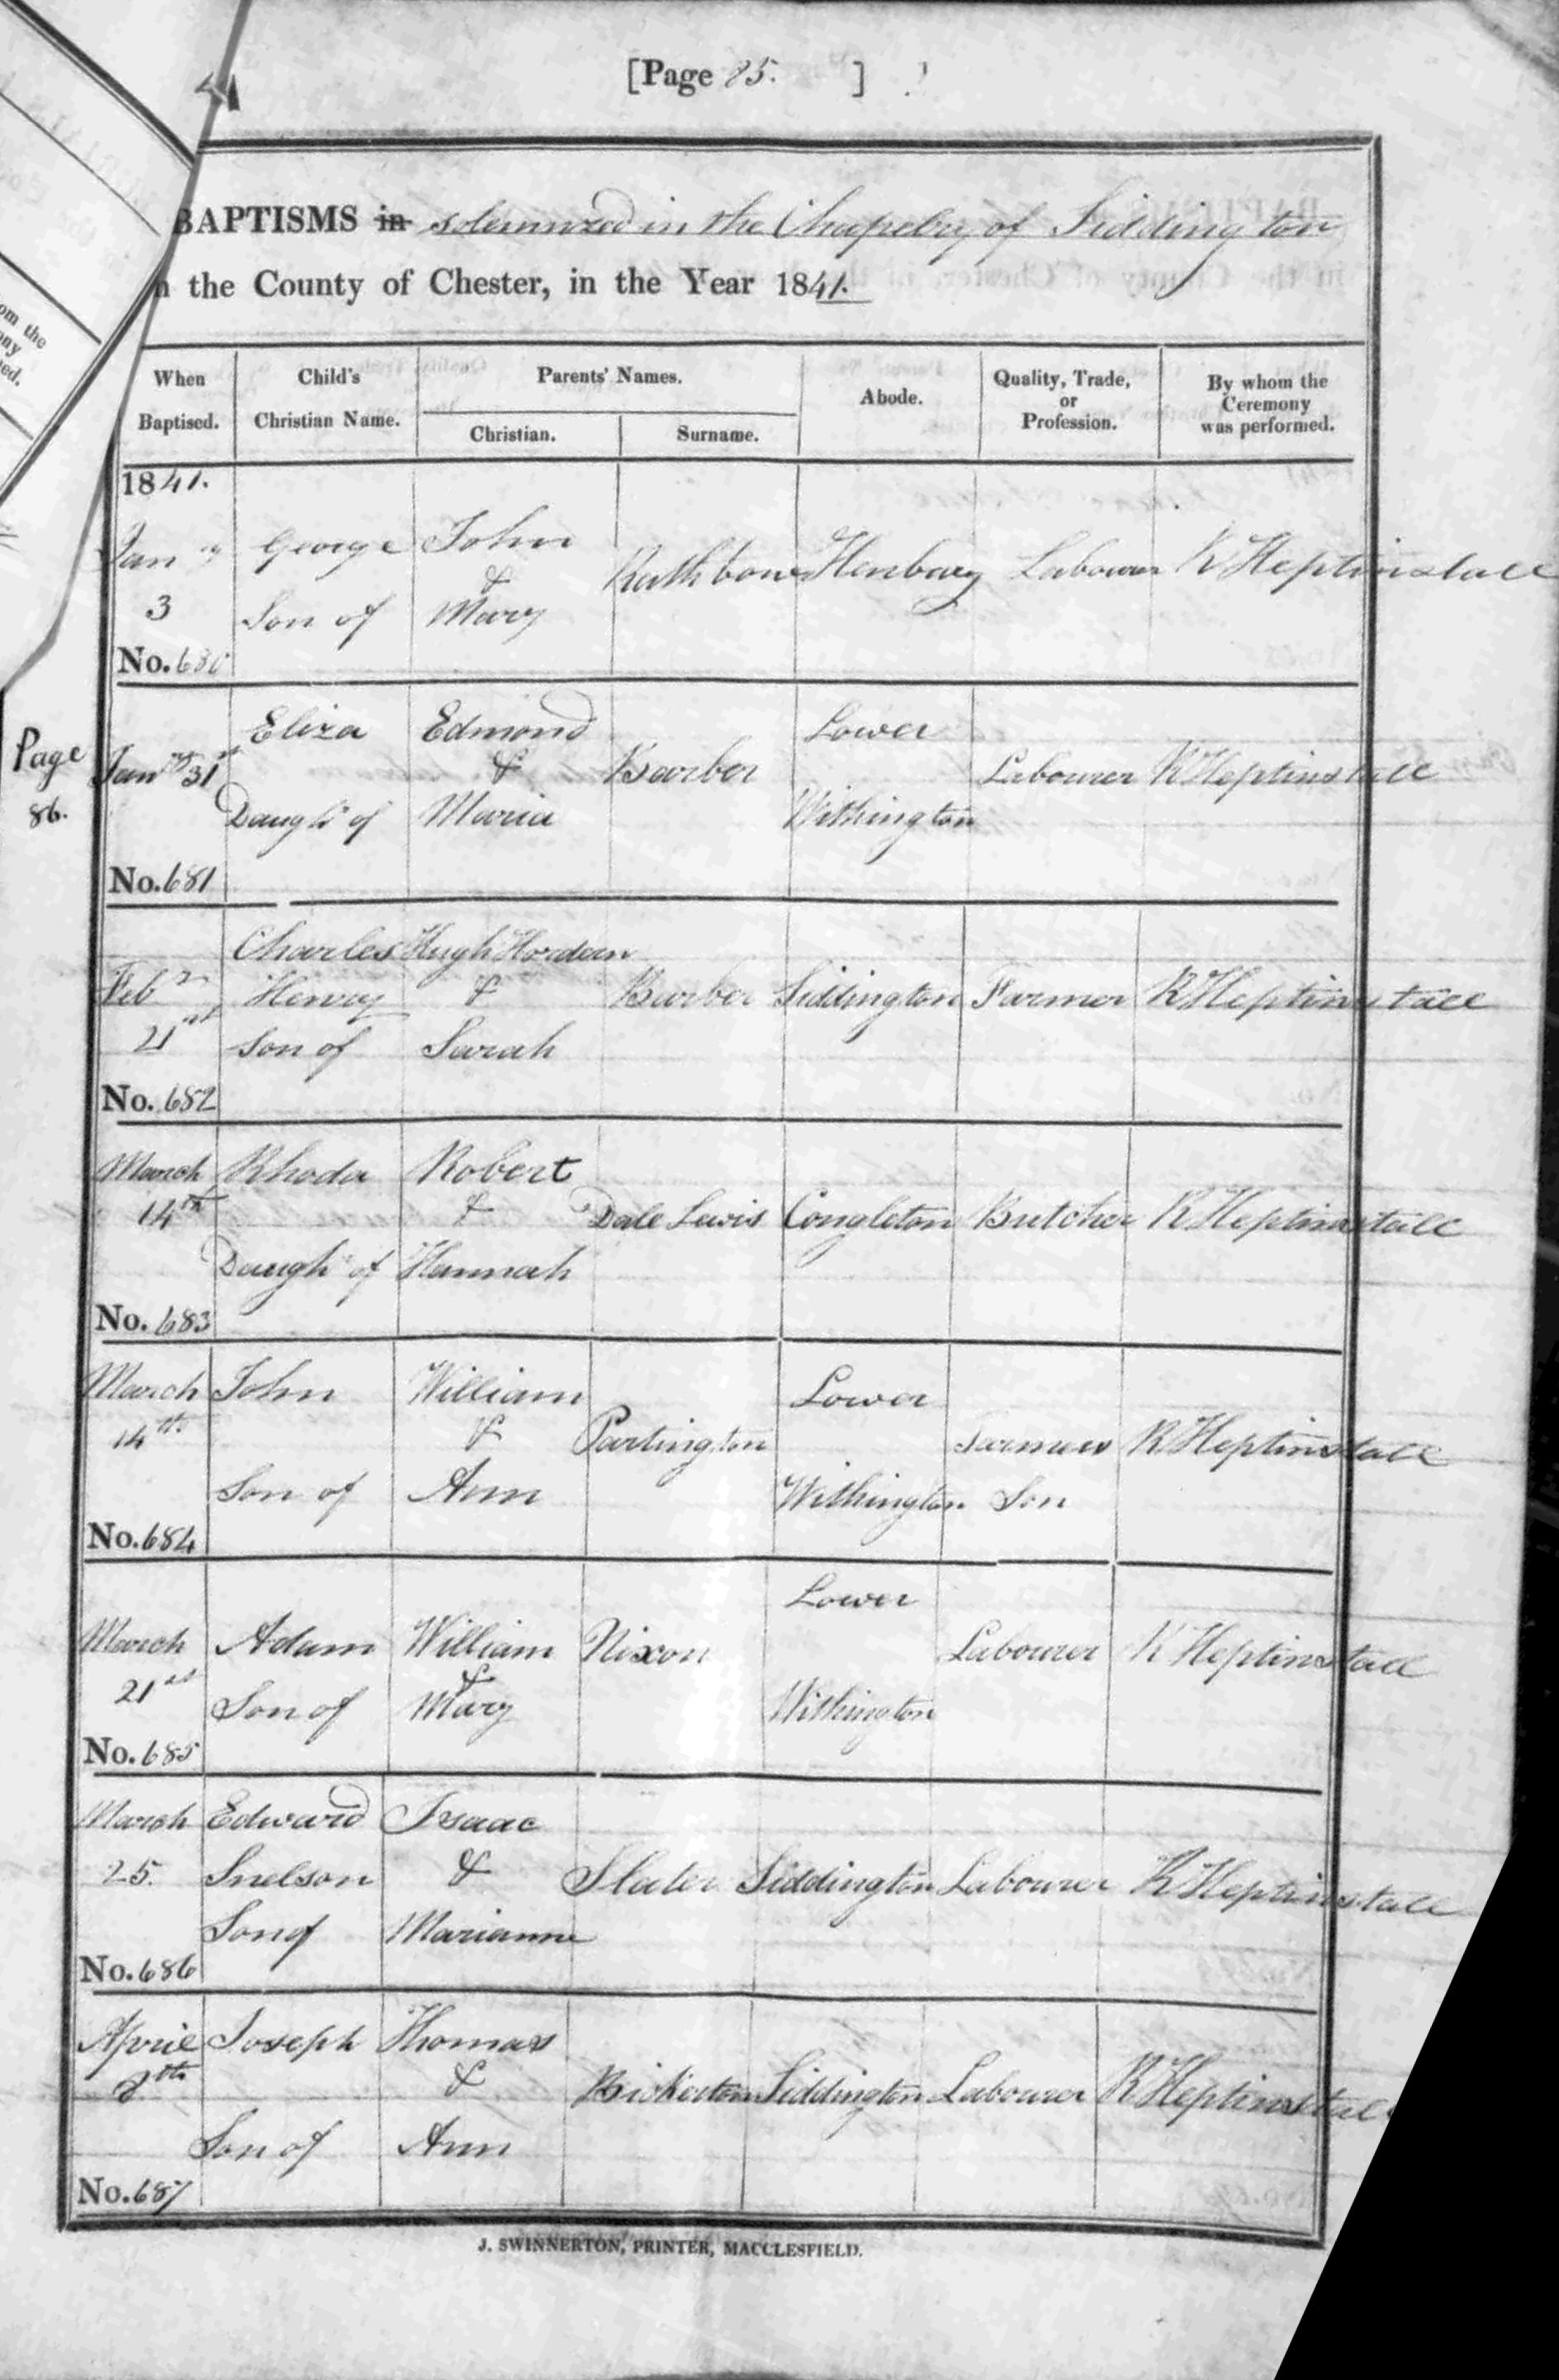 [Page 85. ]
BAPTISMS in solemnized in the Chapelry of Siddington
the County of Chester, in the Year 1841.
When Baptised.
Child's Christian Name.
Parents' Names.
Christian.
Surname.
Abode.
Quality, Trade, or Profession.
By whom the Ceremony was performed.
1841.
Jan ry George John
& Rathbone Henbury Labourer R Heptinstall
3 Son of Mary
No. 680
Eliza Edmond Lower
Page Jan ry 31st & Barber Labourer R Heptinstall
86. Daugh of Maria Withington
No. 681
Charles Hugh Hordern
Feb Henry & Barber Siddington Farmer R Heptinstall
21st Son of Sarah
No. 682
March Rhoda Robert
14th & Dale Lewis Congleton Butcher R Heptinstall
Daugh of Hannah
No. 683
March John William Lower
14th & Partington Farmers R Heptinstall
Son of Ann Withington Son
No. 684
Lower
March Adam William Nixon Labourer R Heptinstall
21st &
Son of Mary Withington
No. 685
March Edward Isaac
25. Snelson & Slater Siddington Labourer R Heptinstall
Son of Marianne
No. 686
April Joseph Thomas
& Bickerton Siddington Labourer R Heptinstall
Son of Ann
No. 687
J. SWINNERTON, PRINTER, MACCLESFIELD.